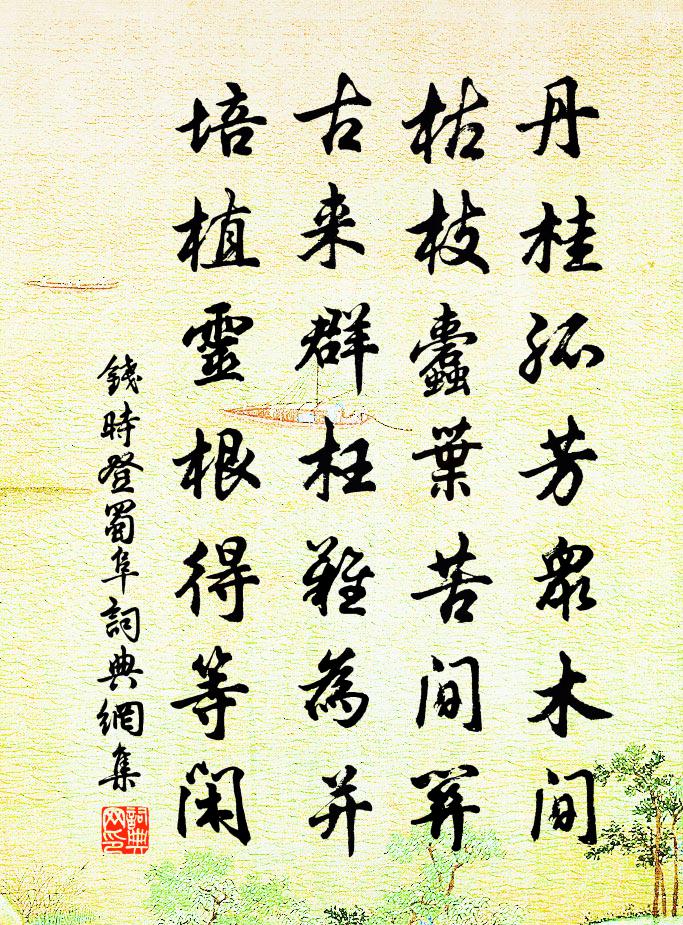 丹桂孤芳眾木間
枯枝蠹葉苦間關
古来群枉難為并
培植靈根得等閑
錢時登蜀阜詞典網集
詞典网印